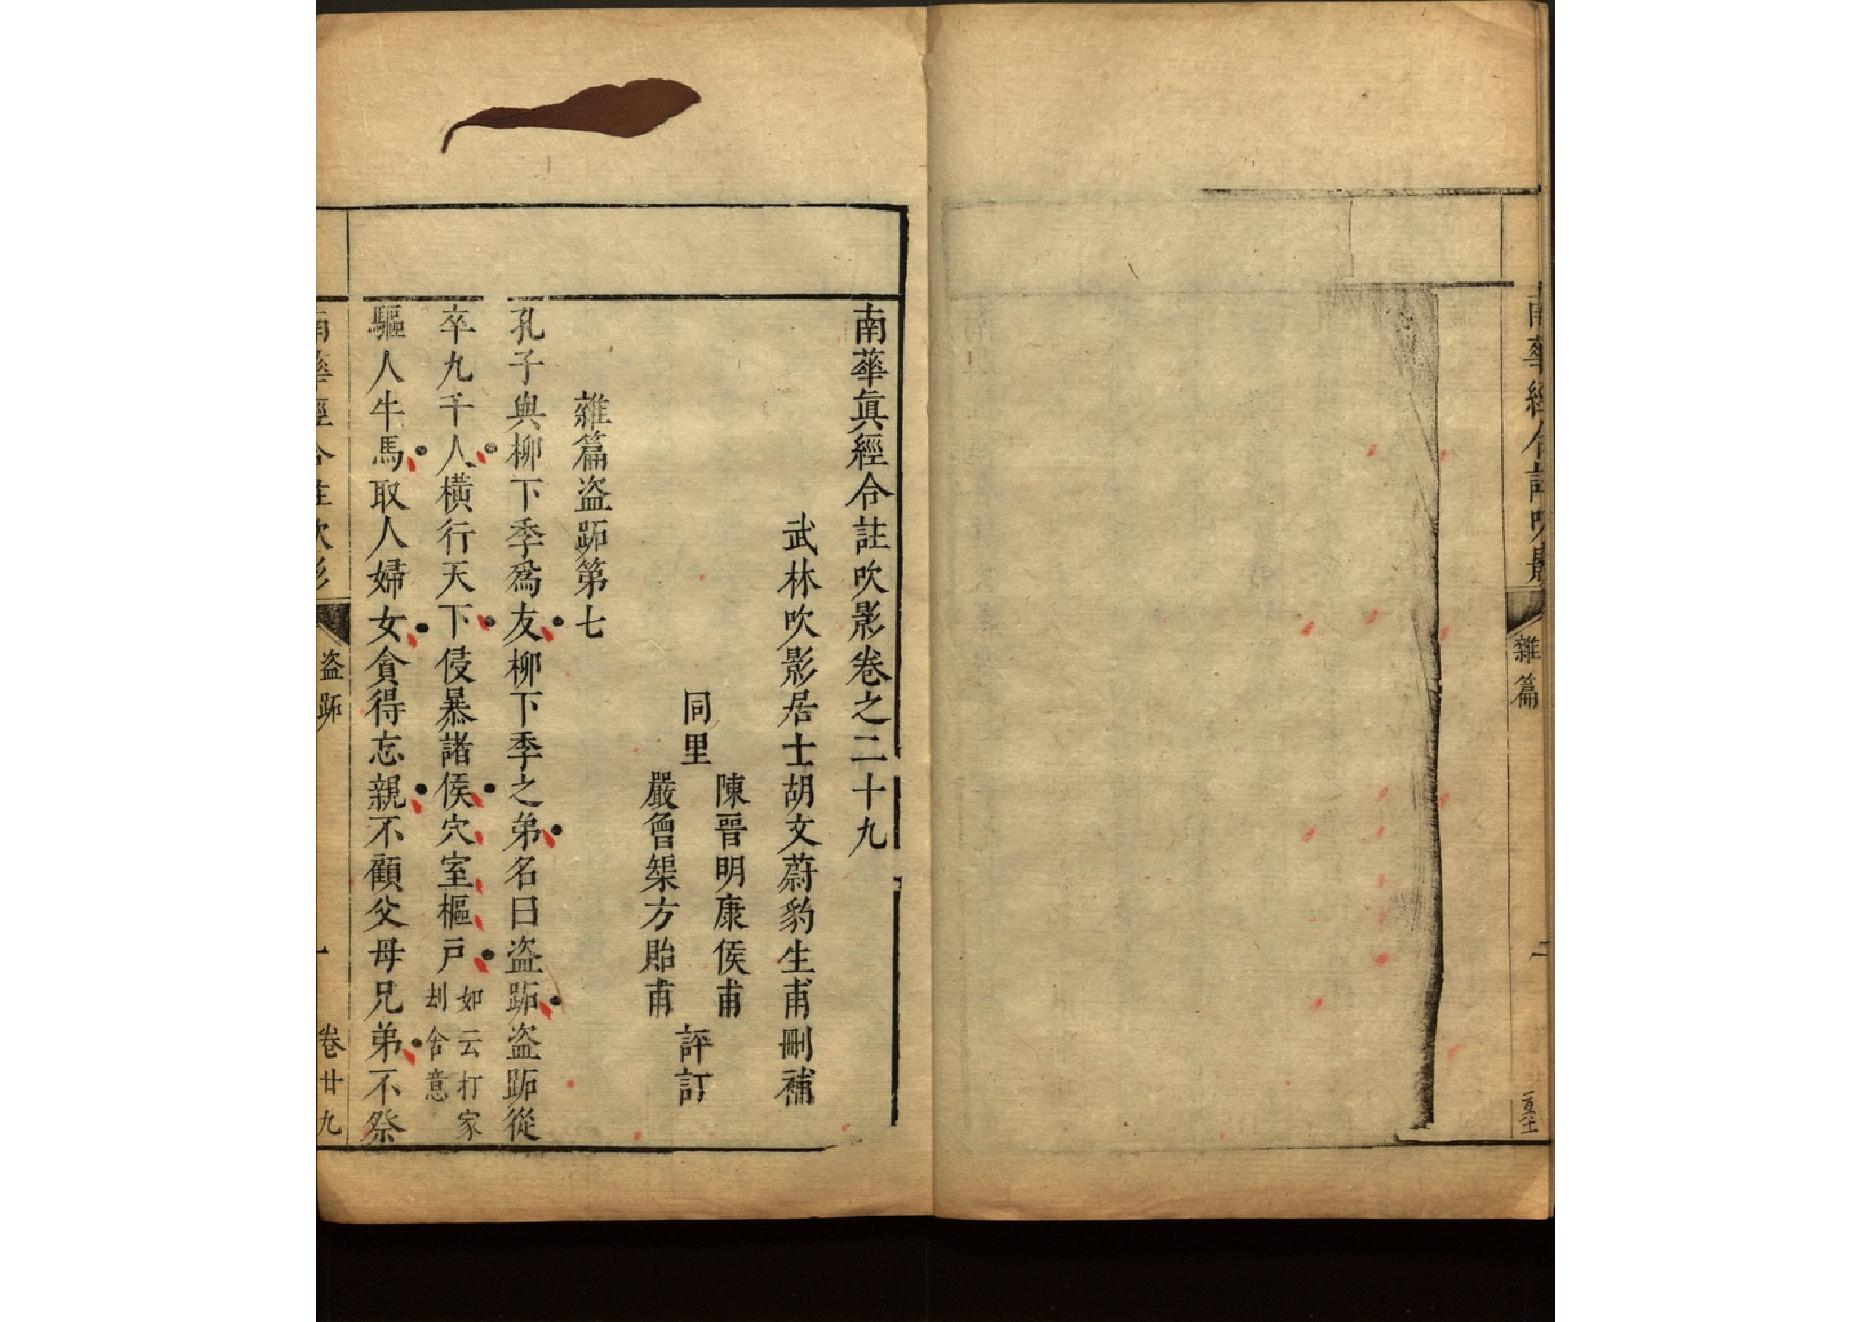 南華經合註吹影
雜篇
南華真經合註吹影卷之二十九
武林吹影居士胡文蔚豹生甫刪補
同里
陳晉明康侯甫
嚴曾榘方貽甫
評訂
雜篇盗跖第七
孔子與柳下季爲友柳下季之弟名曰盗跖盗跖從
卒九千人橫行天下侵暴諸侯穴室樞戸如云打家刦舍意
驅人牛馬取人婦女貪得忘親不顧父母兄弟不祭
南華經合註吹影
盗跖
一
卷廿九